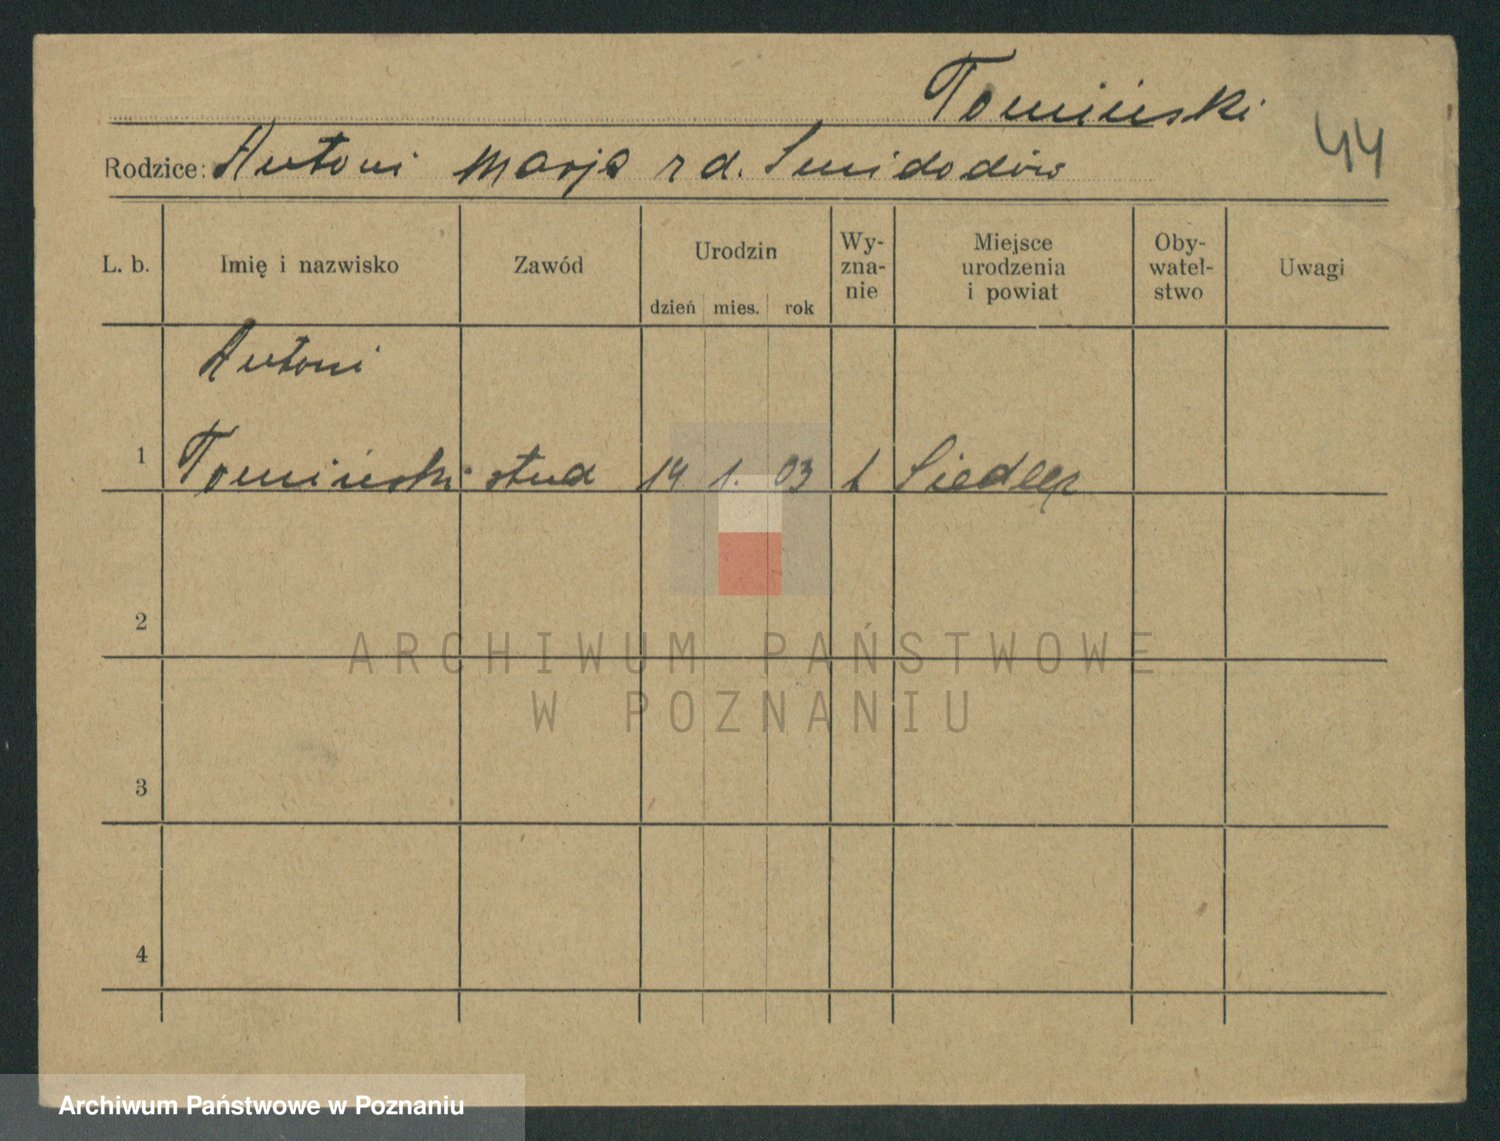 Tomiński
Rodzice: Antoni Marja z d.
44
L. b. Imię i nazwisko Zawód Urodzin dzień mies. rok Wyzna-nie Miejsce urodzenia i powiat Oby-watel-stwo Uwagi
Antoni
1 Tomiński stud 14 1. 03 Siedlce
2
3
4
ARCHIWUM PAŃSTWOWE
W POZNANIU
Archiwum Państwowe w Poznaniu